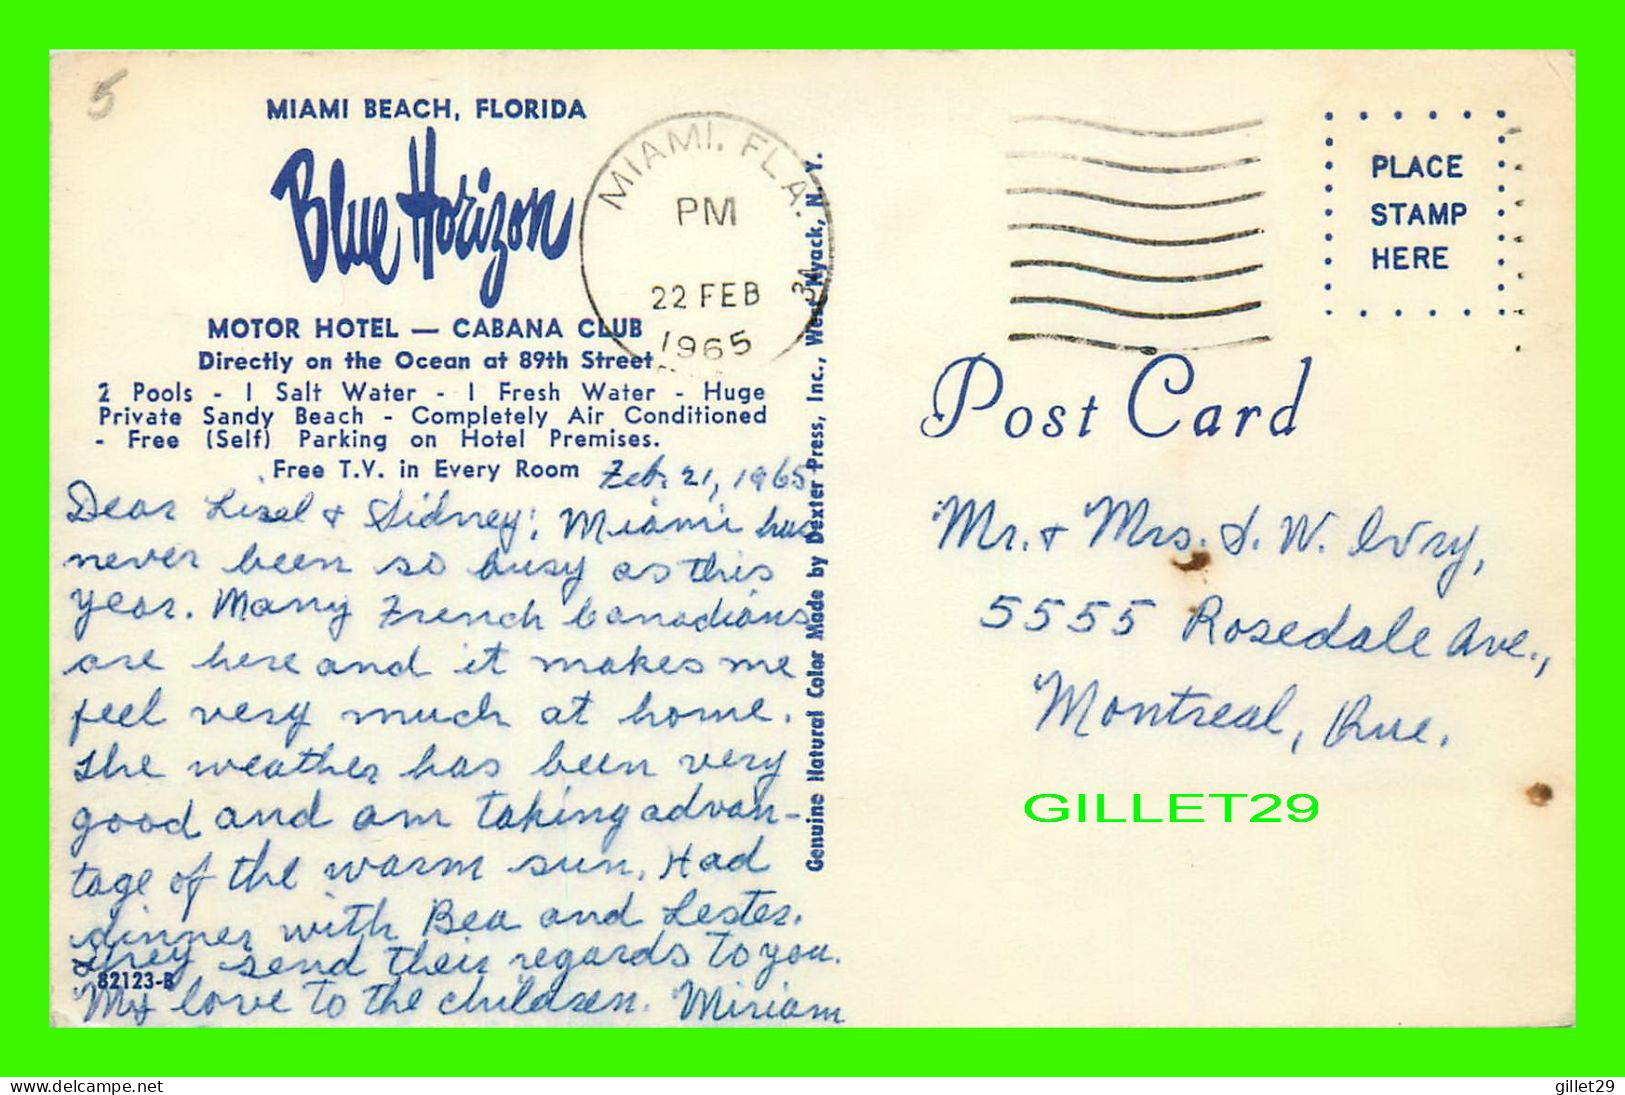 5
MIAMI BEACH, FLORIDA
Blue Horizon
MOTOR HOTEL — CABANA CLUB
Directly on the Ocean at 89th Street
2 Pools - 1 Salt Water - 1 Fresh Water - Huge
Private Sandy Beach - Completely Air Conditioned
- Free (Self) Parking on Hotel Premises.
Free T.V. in Every Room
Feb. 21, 1965
Dear Lisel & Sidney: Miami has
never been so busy as this
year. Many French Canadians
are here and it makes me
feel very much at home.
The weather has been very
good and am taking advan-
tage of the warm sun. Had
dinner with Bea and Lester.
They send their regards to you.
My love to the children. Miriam
82123-B
MIAMI, FLA.
PM
22 FEB
1965
Genuine Natural Color Made by Dexter Press, Inc., West Nyack, N. Y.
PLACE
STAMP
HERE
Post Card
Mr. & Mrs. S. W. Ivry,
5555 Rosedale Ave.,
Montreal, Que.
GILLET29
www.delcampe.net
gillet29